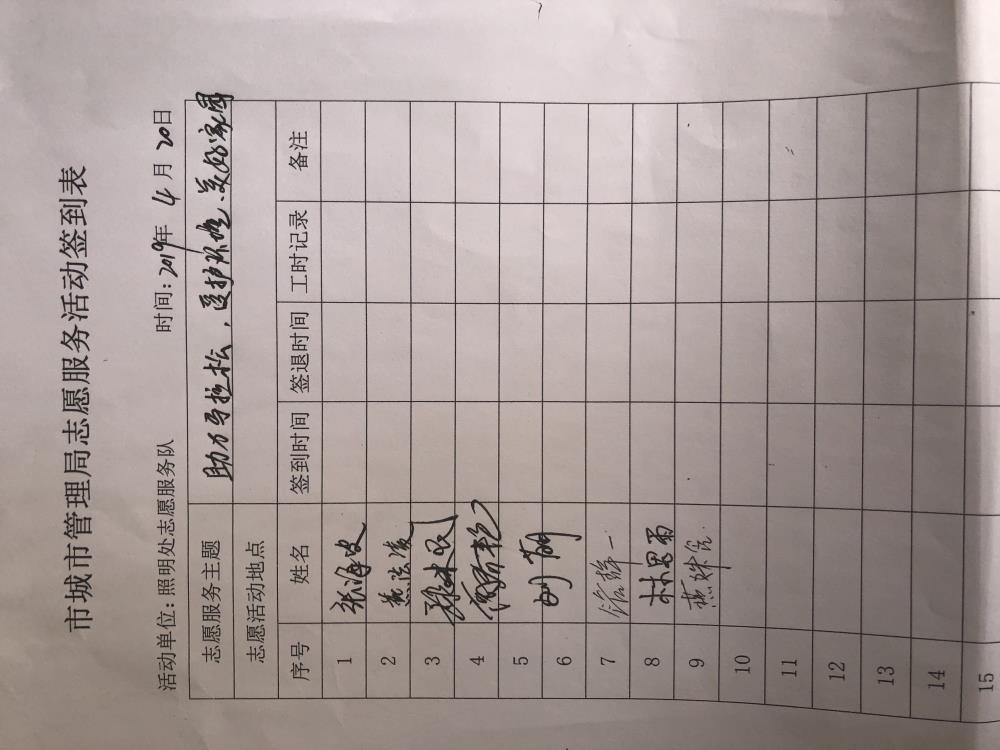 市城市管理局志愿服务活动签到表
活动单位：照明处志愿服务队 时间：2019年 4 月 20日
志愿服务主题 助力马拉松，爱护环境、美好家园
志愿活动地点
序号 姓名 签到时间 签退时间 工时记录 备注
1
2
3
4
5
6
7
8 林思雨
9
10
11
12
13
14
15